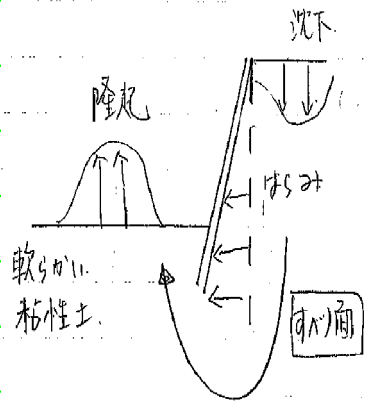 沈下
隆起
はらみ
軟らかい
粘性土.
すべり面